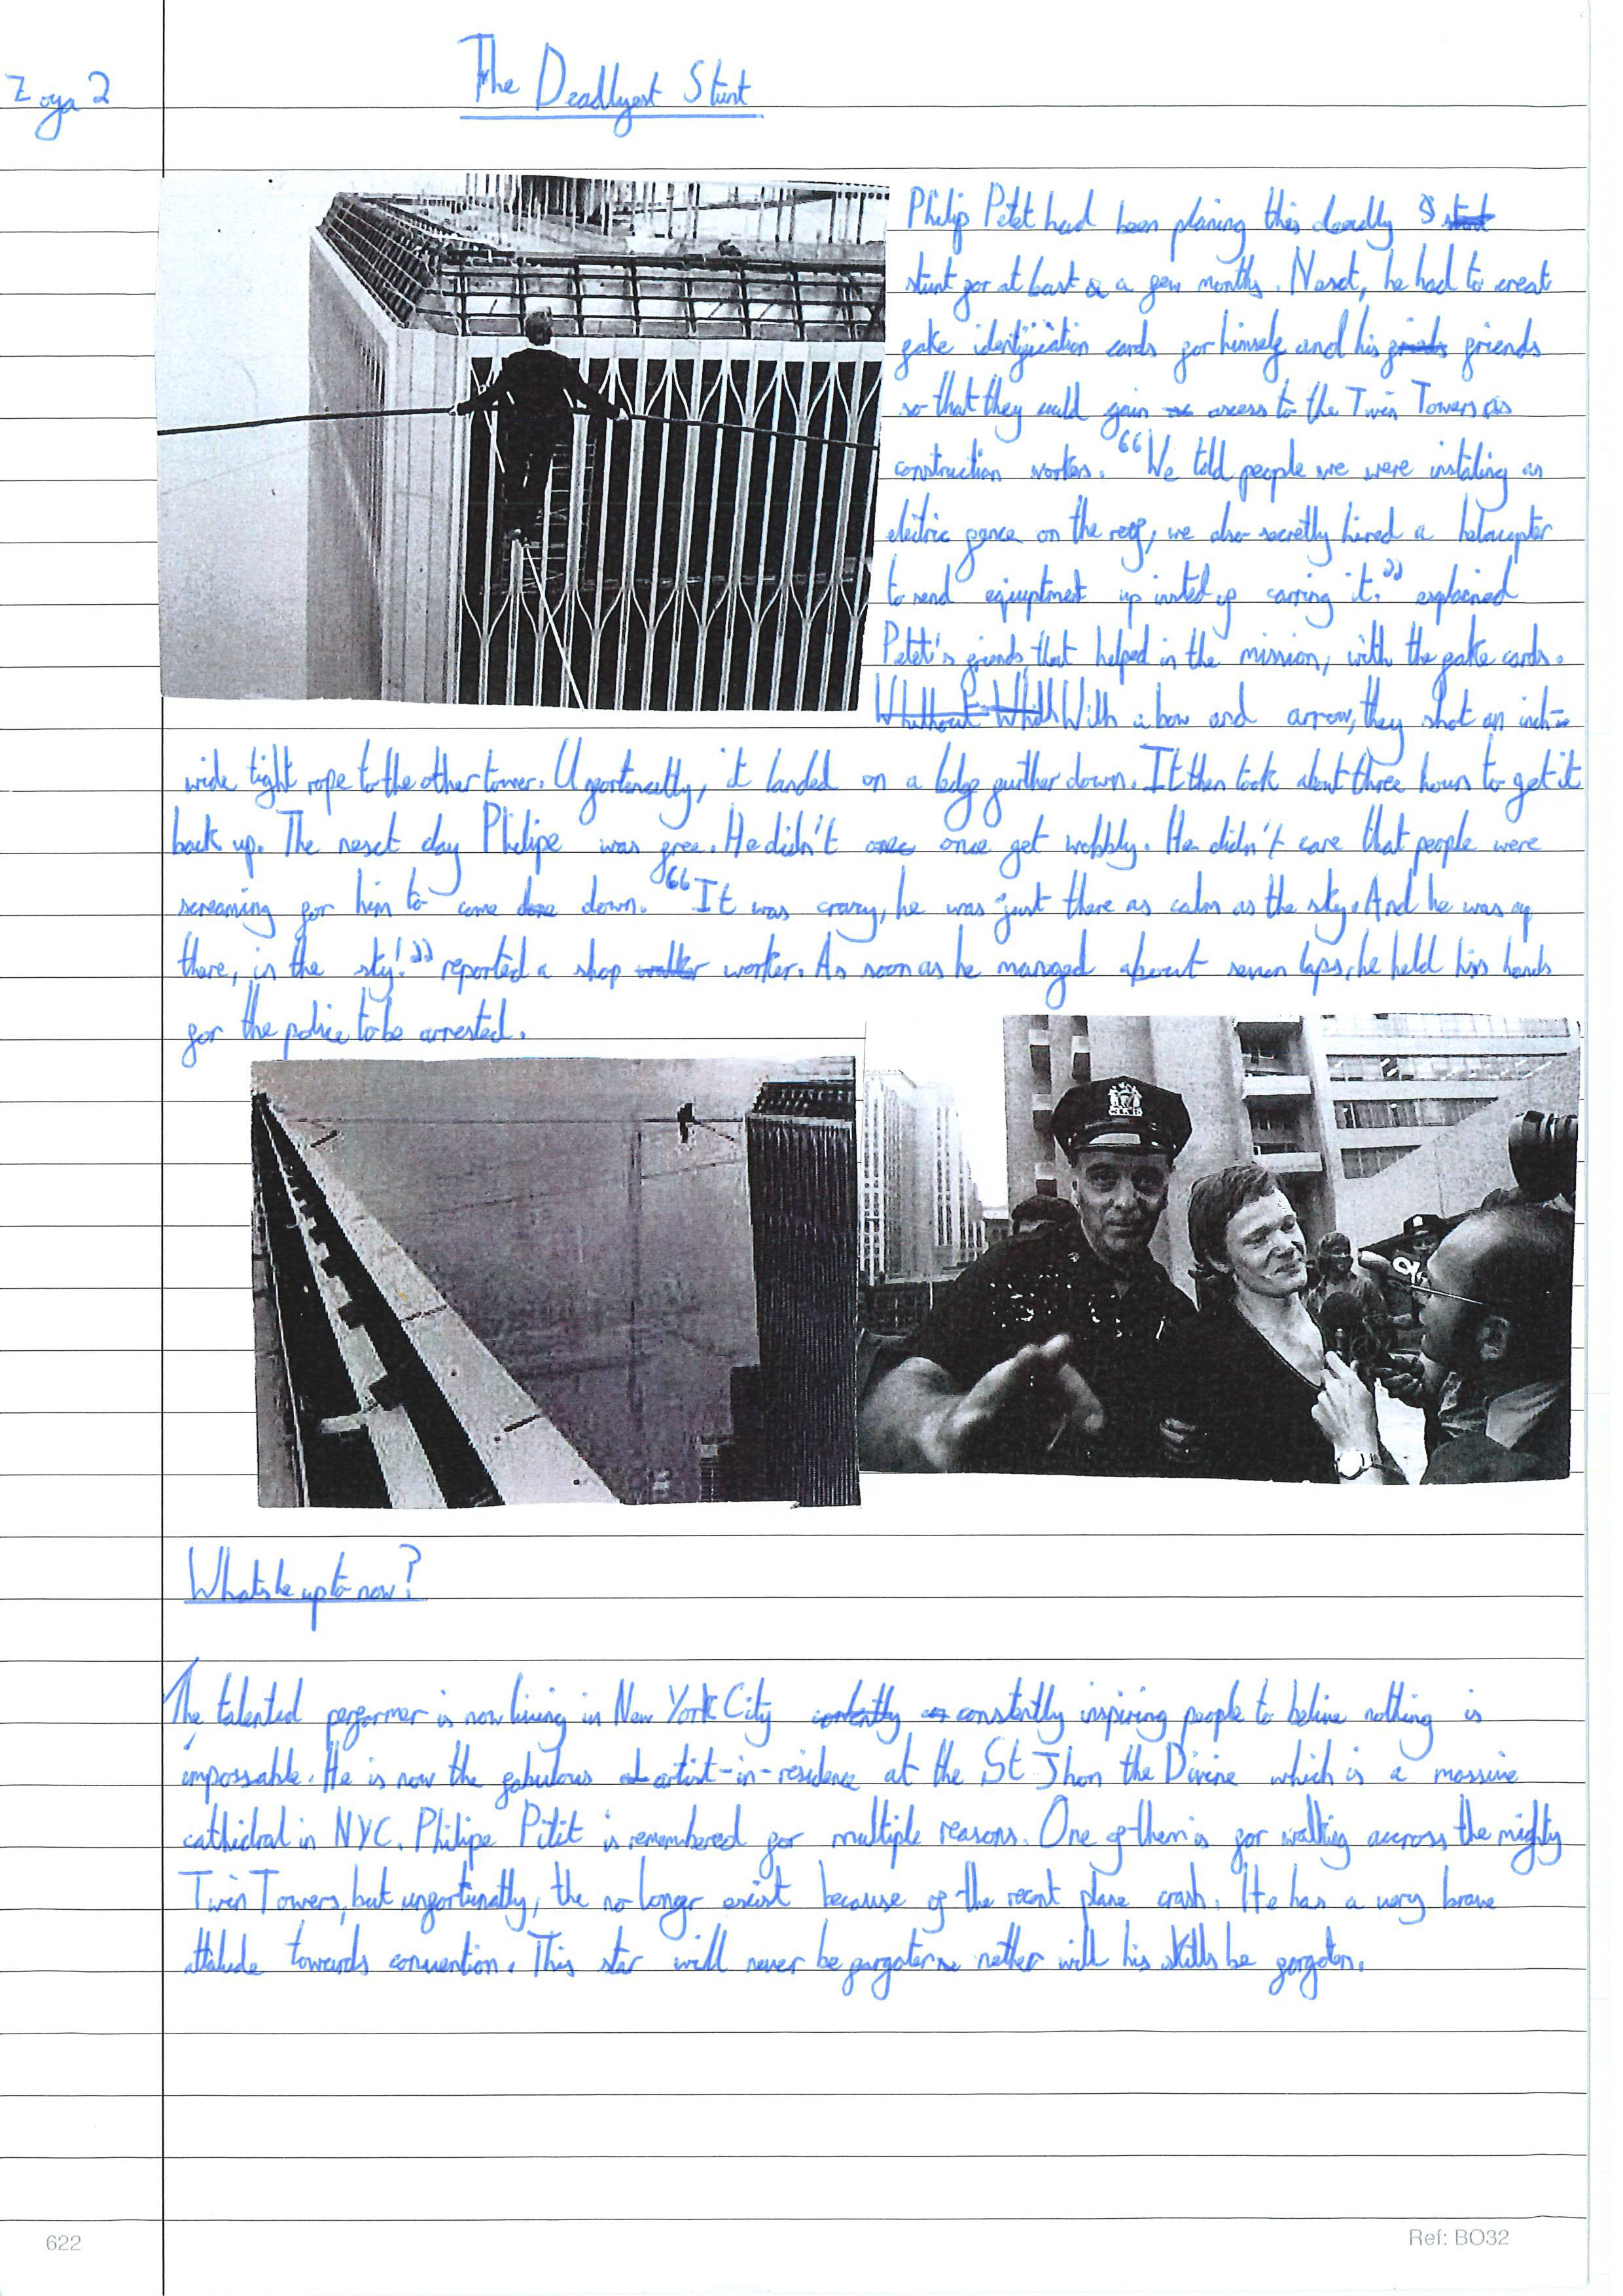 Zoya 2
The Deadlyest Stunt
Philip Petet had been planing this deadly S stunt
stunt for at least a a few months. Nesct, he had to creat
fake identification cards for himself and his frinds friends
so that they could gain access to the Twin Towers as
construction workers. "We told people we were instaling an
electric fence on the roof, we also secretly hired a helacopter
to send equiptment up insted of carring it." explained
Petet's friends, that helped in the mission, with the fake cards.
Whithout Whith With a bow and arrow, they shot an inch-
wide tight rope to the other tower. Ufortenatly, it landed on a ledge further down. It then took about three hours to get it
back up. The nesct day Philipe was free. He didn't once get wobbly. He didn't care that people were
screaming for him to come done down. "It was crazy, he was just there as calm as the sky. And he was up
there, in the sky!" reported a shop walker worker. As soon as he manged about seven laps, he held his hands
for the police to be arrested.
Whats he up to now?
The talented performer is now living in New York City constently constently inspiring people to belive nothing is
impossable. He is now the fabulous artist-in-residence at the St Jhon the Divine which is a massive
cathidral in NYC. Philipe Pitit is remembered for multiple reasons. One of them is for walking accross the mighty
Twin Towers, but unfortunatly, the no longer escist because of the recent plane crash. He has a very brave
attitude towards convention. This star will never be forgoten nether will his skills be forgoten.
622
Ref: BO32